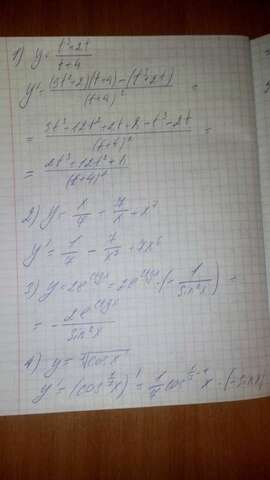 1) y = (t³+2t)/(t+4)
y' = ((3t²+2)(t+4)-(t³+2t))/(t+4)² =
= (3t³+12t²+2t+8-t³-2t)/(t+4)² =
= (2t³+12t²+8)/(t+4)²
2) y = x/7 - 7/x + x⁷
y' = 1/7 - 7/x² + 7x⁶
3) y = 2e^(ctgx) = 2e^(ctgx) · (-1/sin²x) =
= -2e^(ctgx)/sin²x
4) y = ⁷√cosx
y' = (cos^(1/7)x)' = 1/7 cos^(1/7-1)x · (-sinx)